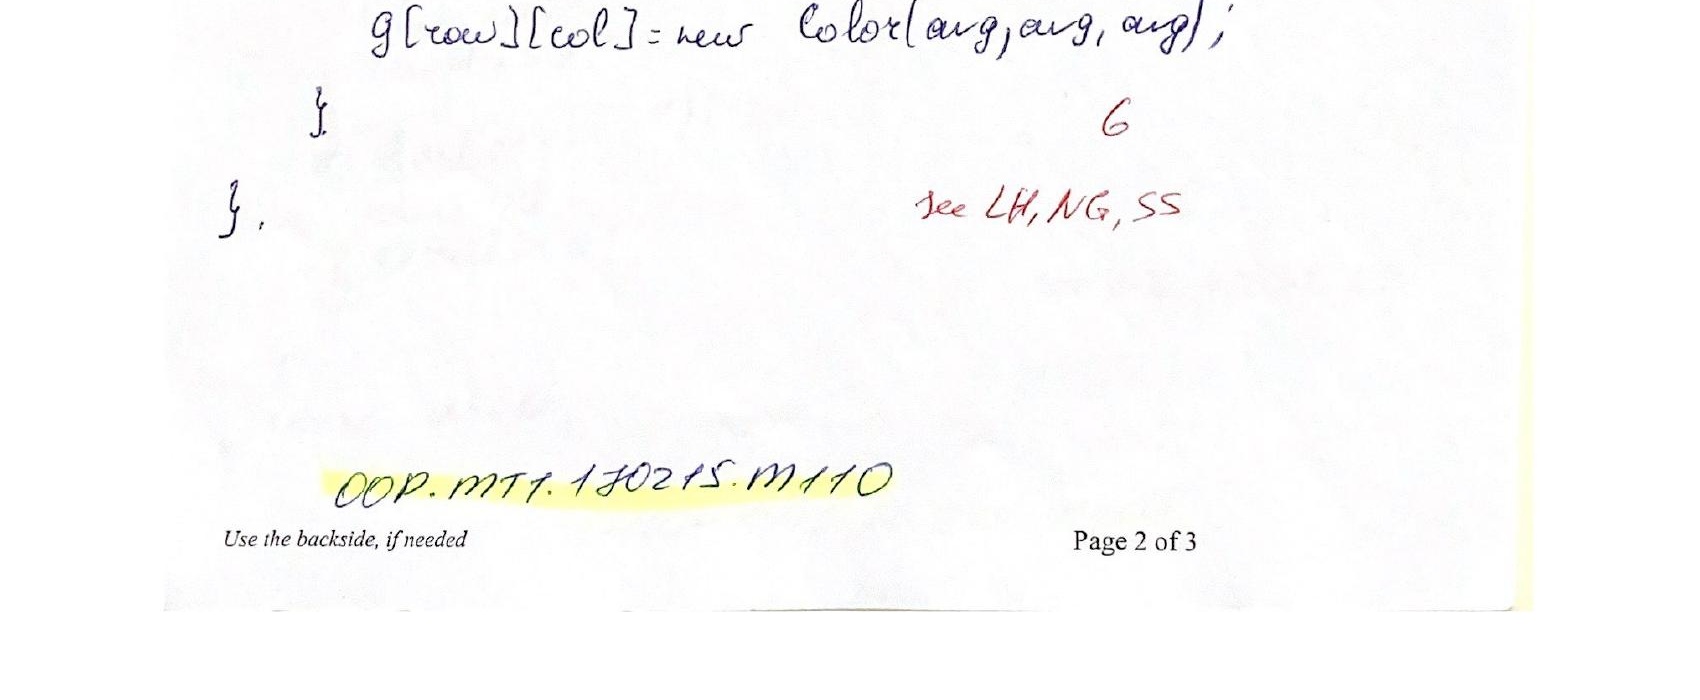 g[row][col]=new Color(avg,avg, avg);
}
6
}.
see LH, NG, SS
OOP.MT1.170215.M110
Use the backside, if needed
Page 2 of 3